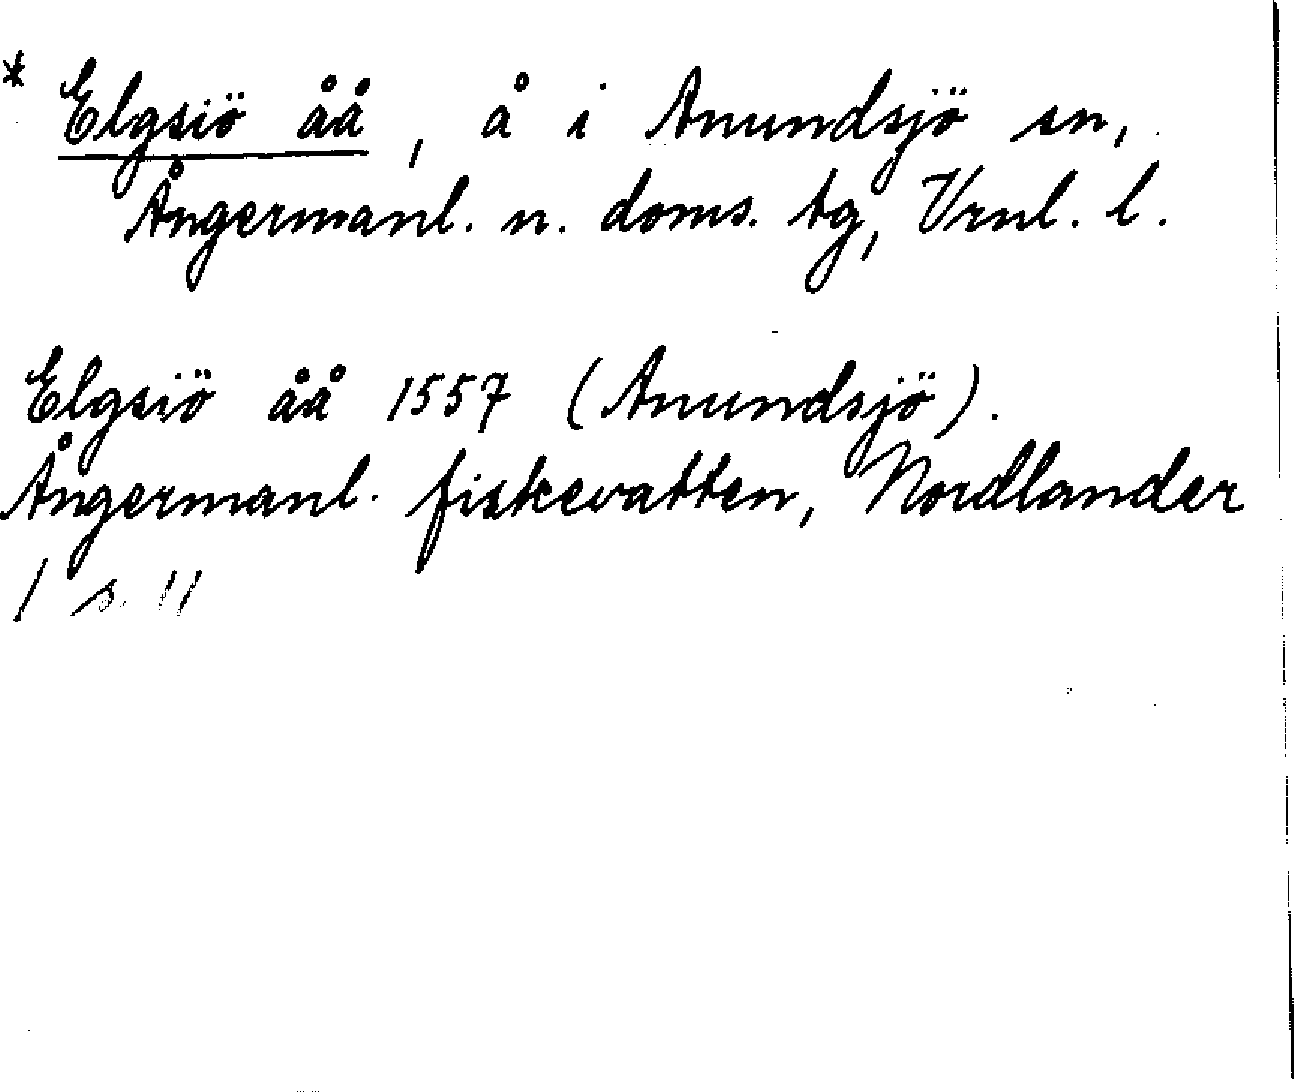 * Elgsiö åå, å i Anundsjö sn,
Ångermanl. n. doms. tg, Vrnl. l.
Elgsiö åå 1557 (Anundsjö).
Ångermanl. fiskevatten, Nordlander
1 s. 11